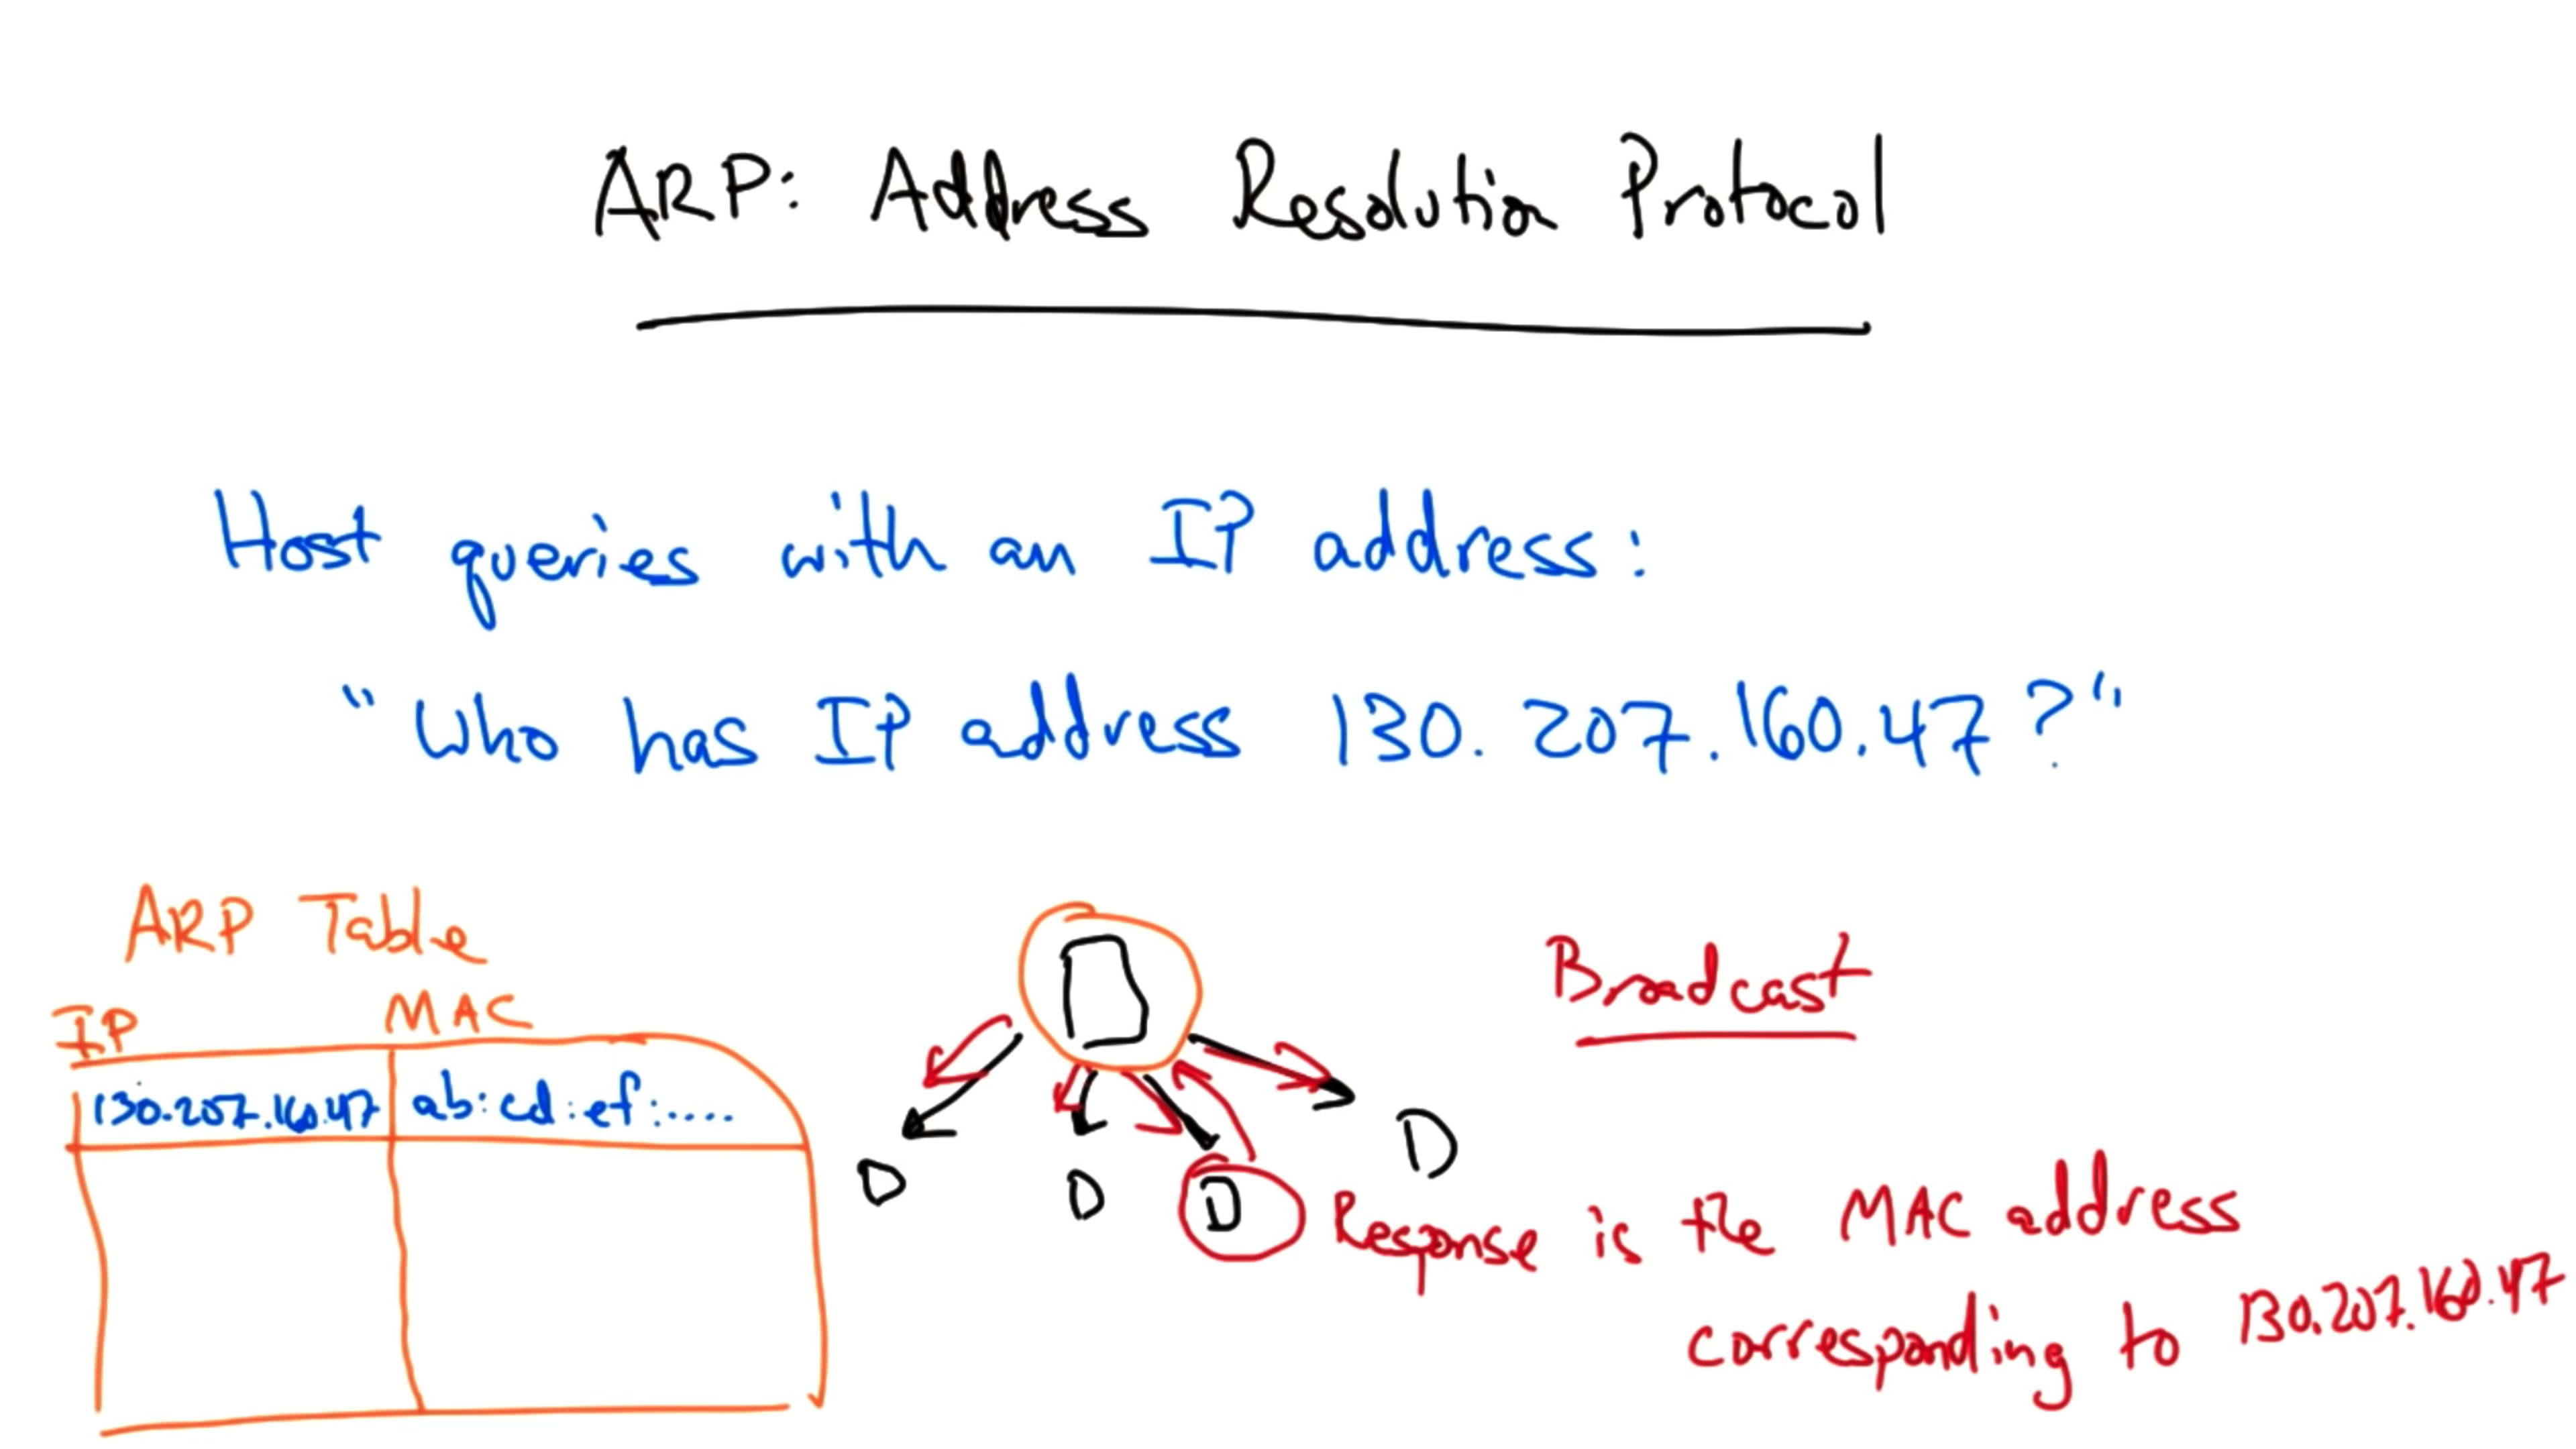 ARP: Address Resolution Protocol
Host queries with an IP address:
"Who has IP address 130.207.160.47?"
ARP Table
IP MAC
130.207.160.47 ab:cd:ef:....
Broadcast
Response is the MAC address
corresponding to 130.207.160.47